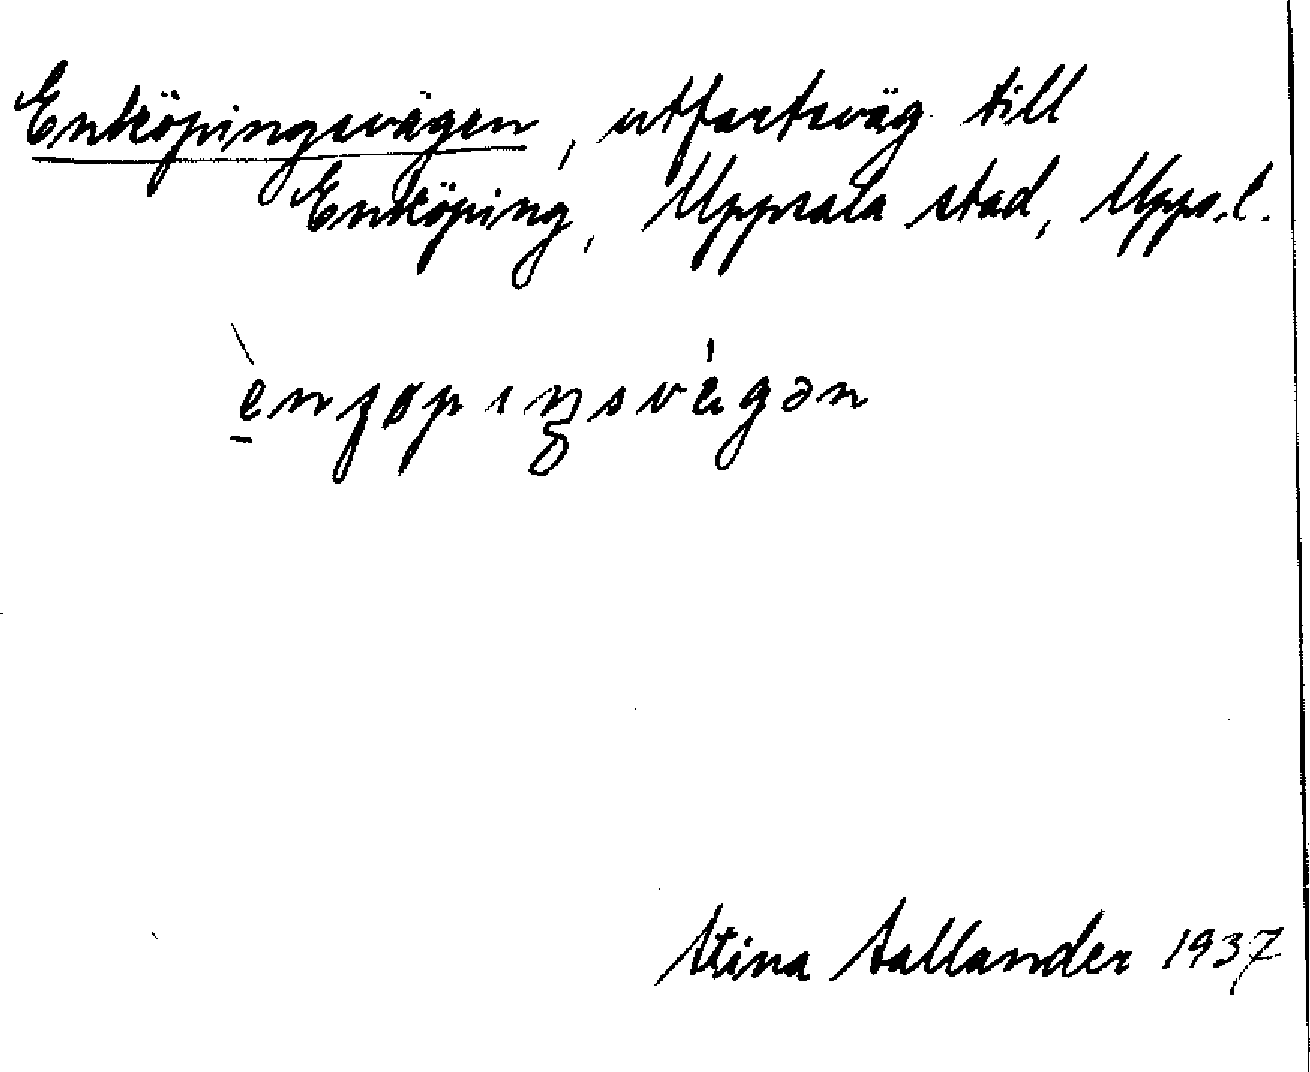 Enköpingsvägen, utfartsväg till
Enköping, Uppsala stad, Upps.l.
Stina Sallander 1937